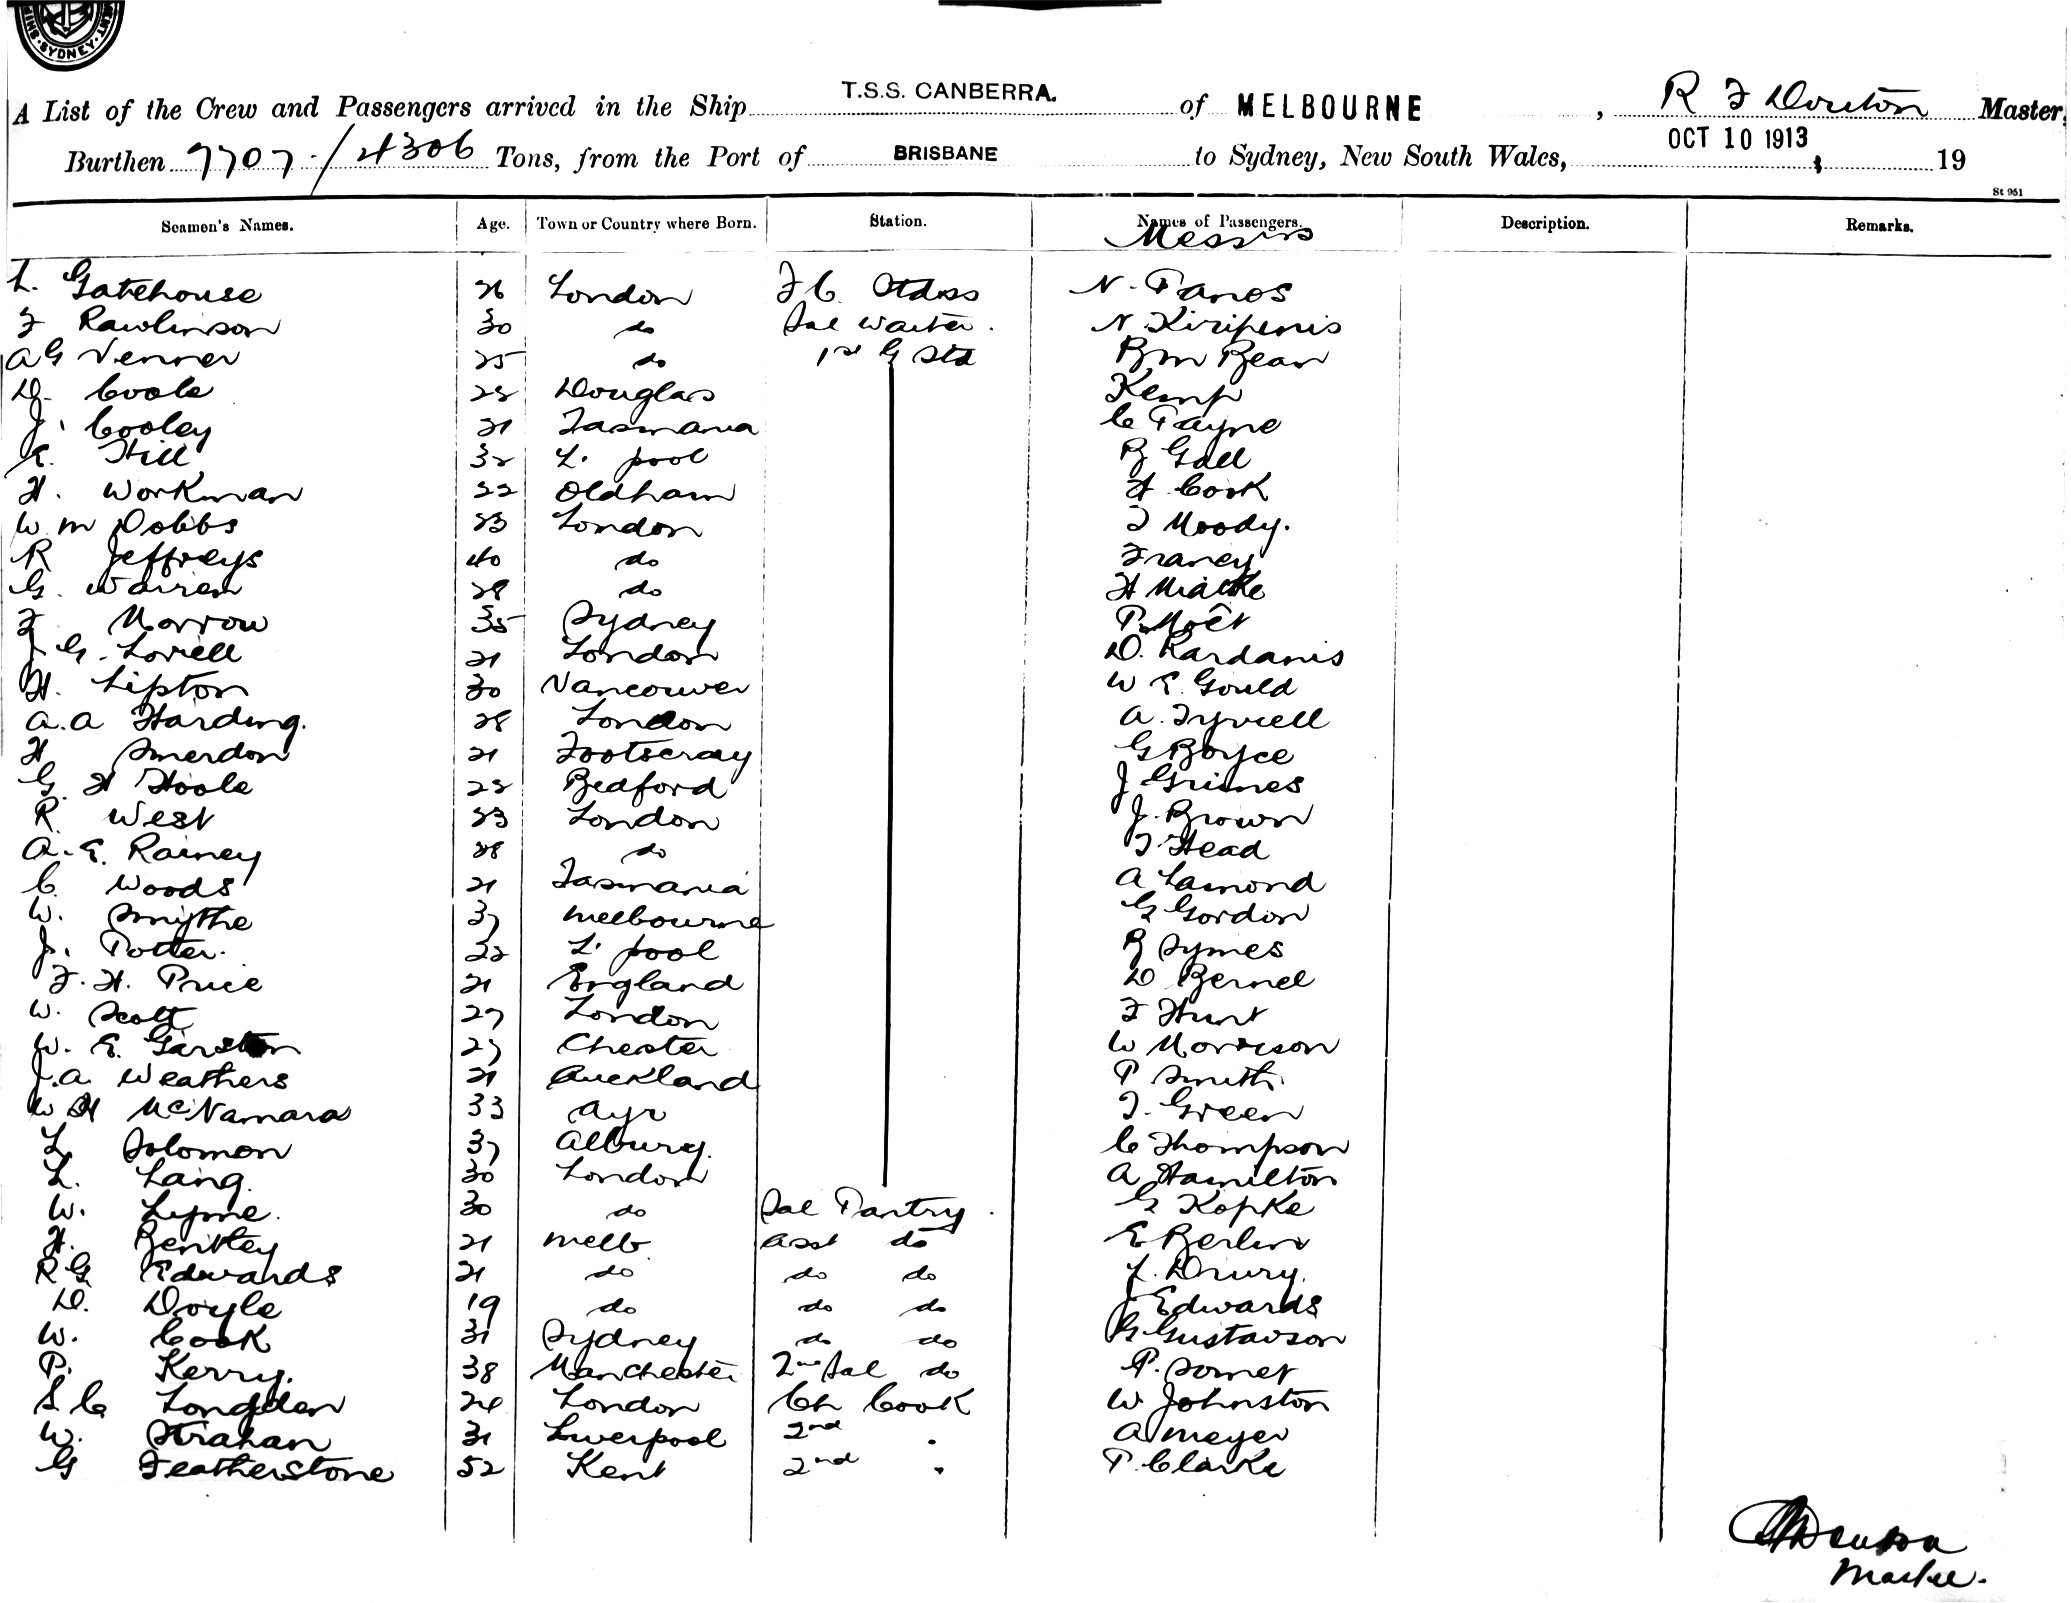 SYDNEY
A List of the Crew and Passengers arrived in the Ship T.S.S. CANBERRA. of MELBOURNE, R F Douton Master,
Burthen 7707 / 4306 Tons, from the Port of BRISBANE to Sydney, New South Wales, OCT 10 1913, 19
St 951
Seamen's Names. Age. Town or Country where Born. Station. Names of Passengers. Description. Remarks.
Messrs
L. Gatehouse 26 London F C Stdss N. Panos
F Rawlinson 30 do Sal Waiter. N.
A G Venner 25 do 1st G Std B M Bean
D. Coole 22 Douglas Kemp
J. Cooley 21 Tasmania C Payne
E. Hill 32 L. pool B Gall
H. Workman 22 Oldham H Cook
W. M Dobbs 23 London J Moody.
R Jeffreys 40 do Franey
G. Warren 28 do H
F Morrow 35 Sydney P. Moêt
J G. Lovell 21 London D. Kardanis
H. Lipton 30 Vancouver W E. Gould
A. A Harding. 28 London A. Tyrrell
H Smerdon 21 Footscray G Boyce
G. H Hoole 22 Bedford J Grimes
R West 23 London J. Brown
A. E. Rainey 28 do J Head
C. Woods 21 Tasmania A Lamond
W. Smythe 37 Melbourne G Gordon
J. Potter. 22 L. pool B Symes
F. H. Price 21 England D Bernel
W. Scott 27 London F Hunt
W. E. Garston 27 Chester W Morrison
J. A. Weathers 21 Auckland P Smith.
W H McNamara 33 Ayr J. Green
L Solomon 37 Albury. C Thompson
L. Lang. 30 London A Hamilton
W. Lyme. 30 do Sal Pantry. G Kopke
H. Bentley 21 Melb Asst do E Berlin
R G Edwards 21 do do do L. Drury.
D. Doyle 19 do do do J Edwards
W. Cook 31 Sydney do do G Gustavson
P. Kerry. 38 Manchester 2nd Sal do P. Somer
S C Longden 24 London Ch Cook W Johnston
W. Strahan 31 Liverpool 2nd . A Meyer
G Featherstone 52 Kent 2nd . P. Clarke
Master.